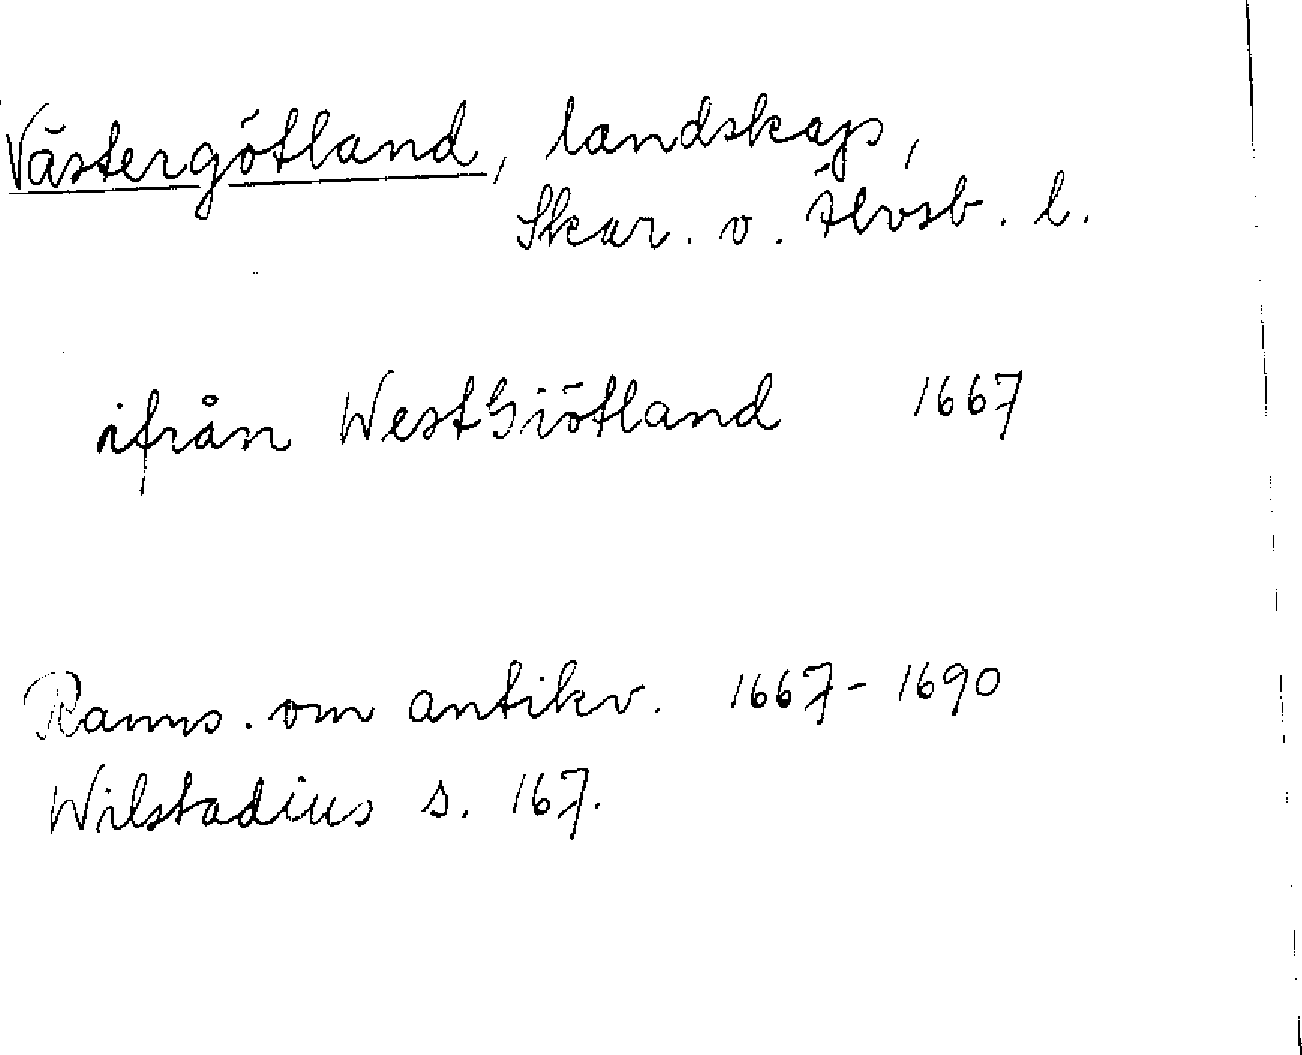 Västergötland, landskap,
Skar. o. Älvsb. l.
ifrån WestGiötland 1667
Ranns. om antikv. 1667-1690
Wilstadius s. 167.